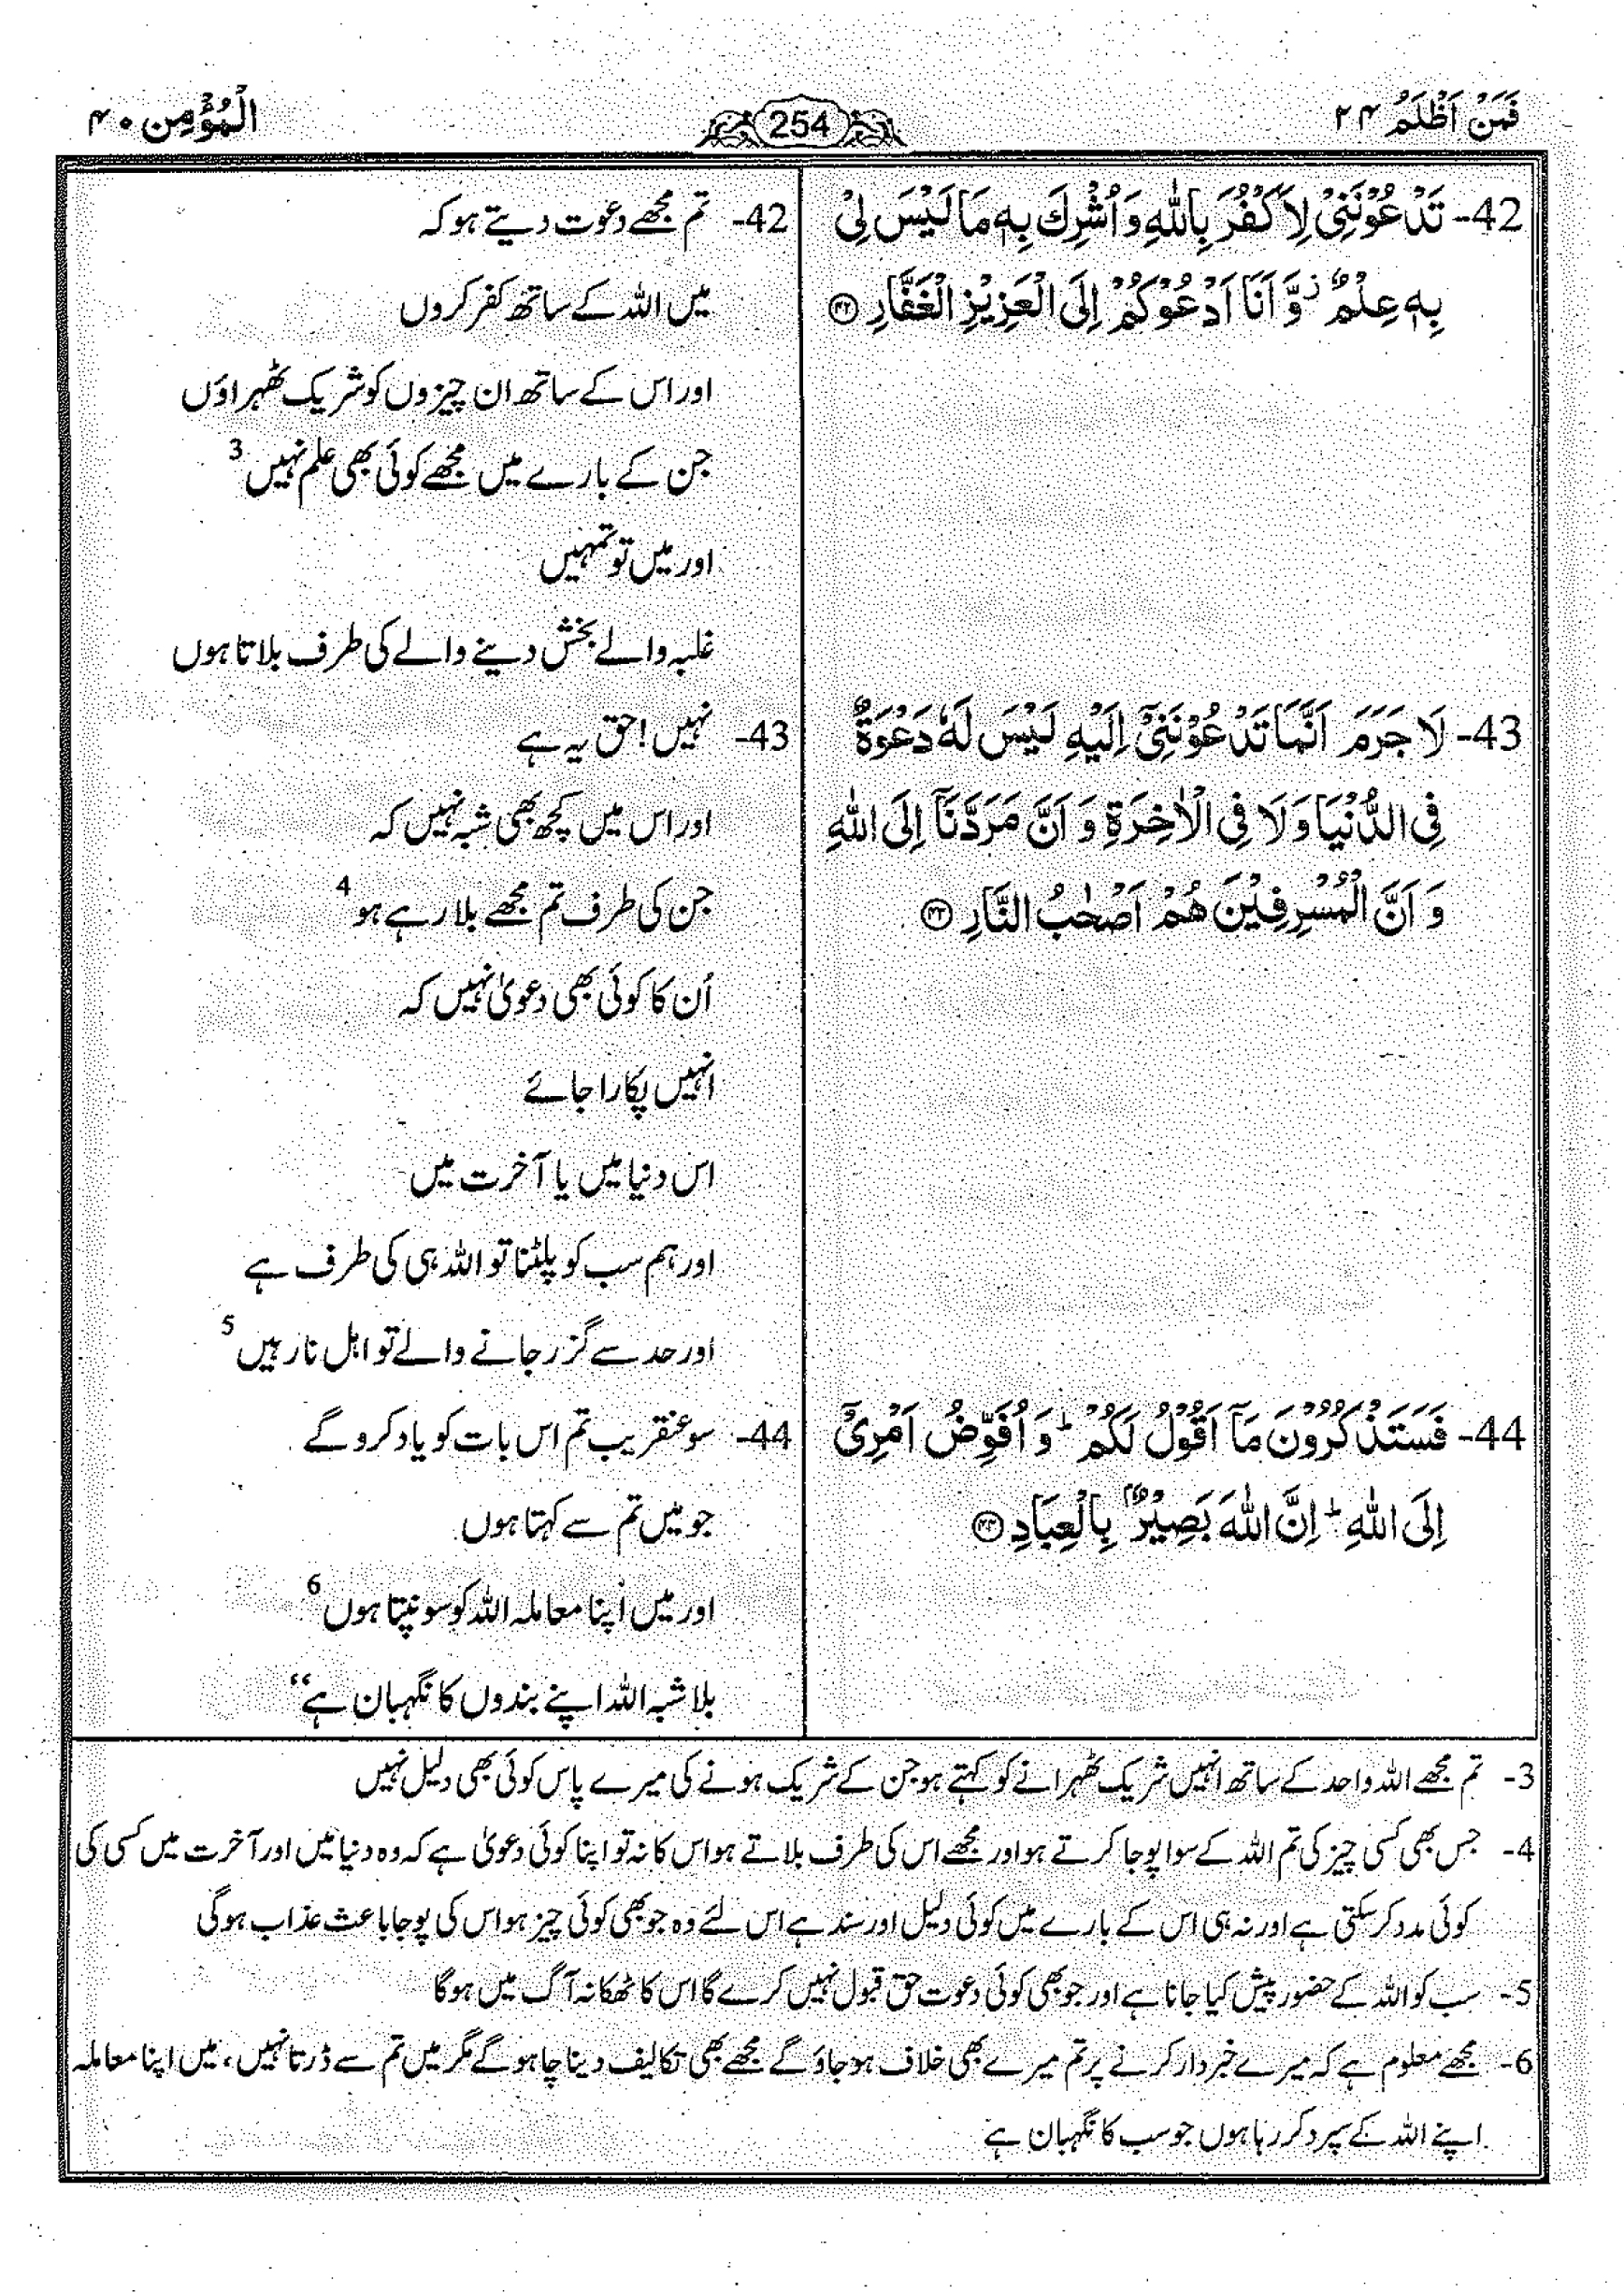 فَمَنْ اَظْلَمُ ۲۴
254
الْمُؤْمِن ۴۰
42- تَدْعُوْنَنِیْ لِاَكْفُرَ بِاللّٰهِ وَ اُشْرِكَ بِهٖ مَا لَیْسَ لِیْ
بِهٖ عِلْمٌ ؗ وَّ اَنَا اَدْعُوْكُمْ اِلَى الْعَزِیْزِ الْغَفَّارِ ۝۴۲
42- تم مجھے دعوت دیتے ہو کہ
میں اللہ کے ساتھ کفر کروں
اور اس کے ساتھ ان چیزوں کو شریک ٹھہراؤں
جن کے بارے میں مجھے کوئی بھی علم نہیں 3
اور میں تو تمہیں
غلبہ والے بخش دینے والے کی طرف بلاتا ہوں
43- لَا جَرَمَ اَنَّمَا تَدْعُوْنَنِیْۤ اِلَیْهِ لَیْسَ لَهٗ دَعْوَةٌ
فِی الدُّنْیَا وَ لَا فِی الْاٰخِرَةِ وَ اَنَّ مَرَدَّنَاۤ اِلَى اللّٰهِ
وَ اَنَّ الْمُسْرِفِیْنَ هُمْ اَصْحٰبُ النَّارِ ۝۴۳
43- نہیں! حق یہ ہے
اور اس میں کچھ بھی شبہ نہیں کہ
جن کی طرف تم مجھے بلا رہے ہو 4
اُن کا کوئی بھی دعویٰ نہیں کہ
انہیں پکارا جائے
اس دنیا میں یا آخرت میں
اور ہم سب کو پلٹنا تو اللہ ہی کی طرف ہے
اور حد سے گزر جانے والے تو اہل نار ہیں 5
44- فَسَتَذْكُرُوْنَ مَاۤ اَقُوْلُ لَكُمْ ؕ وَ اُفَوِّضُ اَمْرِیْۤ
اِلَى اللّٰهِ ؕ اِنَّ اللّٰهَ بَصِیْرٌۢ بِالْعِبَادِ ۝۴۴
44- سو عنقریب تم اس بات کو یاد کرو گے
جو میں تم سے کہتا ہوں
اور میں اپنا معاملہ اللہ کو سونپتا ہوں 6
بلا شبہ اللہ اپنے بندوں کا نگہبان ہے‘‘
3- تم مجھے اللہ واحد کے ساتھ انہیں شریک ٹھہرانے کو کہتے ہو جن کے شریک ہونے کی میرے پاس کوئی بھی دلیل نہیں
4- جس بھی کسی چیز کی تم اللہ کے سوا پوجا کرتے ہو اور مجھے اس کی طرف بلاتے ہو اس کا نہ تو اپنا کوئی دعویٰ ہے کہ وہ دنیا میں اور آخرت میں کسی کی
کوئی مدد کر سکتی ہے اور نہ ہی اس کے بارے میں کوئی دلیل اور سند ہے اس لئے وہ جو بھی کوئی چیز ہو اس کی پوجا باعث عذاب ہوگی
5- سب کو اللہ کے حضور پیش کیا جانا ہے اور جو بھی کوئی دعوت حق قبول نہیں کرے گا اس کا ٹھکانہ آگ میں ہوگا
6- مجھے معلوم ہے کہ میرے خبردار کرنے پر تم میرے بھی خلاف ہو جاؤ گے مجھے بھی تکالیف دینا چاہو گے مگر میں تم سے ڈرتا نہیں، میں اپنا معاملہ
اپنے اللہ کے سپرد کر رہا ہوں جو سب کا نگہبان ہے